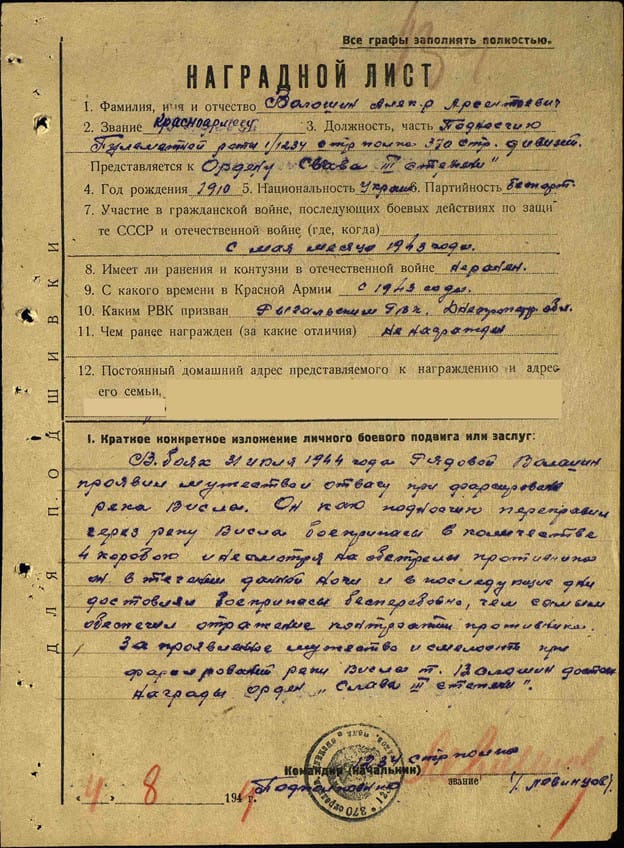 Все графы заполнять полностью.
НАГРАДНОЙ ЛИСТ
1. Фамилия, имя и отчество Волошин Алекр Арсентьевич
2. Звание Красноармеец 3. Должность, часть Подносчик
Пулеметной роты 1/1234 стр полка 370 стр. дивизии.
Представляется к Ордену "Слава III степени"
4. Год рождения 1910 5. Национальность Украин 6. Партийность беспарт.
7. Участие в гражданской войне, последующих боевых действиях по защи-
те СССР и отечественной войне (где, когда)
С мая месяца 1943 года.
8. Имеет ли ранения и контузии в отечественной войне не ранен.
9. С какого времени в Красной Армии с 1943 года.
10. Каким РВК призван РВК. Днепропетр. обл.
11. Чем ранее награжден (за какие отличия) не награжден
12. Постоянный домашний адрес представляемого к награждению и адрес
его семьи,
ДЛЯ ПОДШИВКИ
I. Краткое конкретное изложение личного боевого подвига или заслуг:
В боях 31 июля 1944 года Рядовой Валашин
проявил мужество и отвагу при форсировании
река Висла. Он как подносчик переправил
через реку Висла боеприпасы в количестве
4 коробок и несмотря на обстрелы противника
он в течении данной ночи и в последующие дни
доставлял боеприпасы бесперебойно, чем самым
обеспечил отражение контратаки противника.
За проявленное мужество и смелость при
форсировании реки Висла т. Валашин достоин
награды орден "Слава III степени".
Командир (начальник) 1234 стр полка
Подполковник
звание
4 8 1944 г.